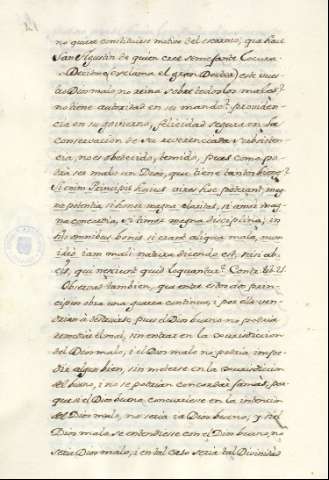 no quiere constituirse motivo del escarnio, que hace
San Agustin de quien cree semejante locura.
Decidme (exclama el gran Doctor) este vues-
tro Dios malo no reina sobre todos los malos?
no tiene autoridad en su mando? providen-
cia en su govierno, felicidad segura en la
conservacion de su
cia, no es obedecido, temido, pues como po-
drá ser malo un Dios, que tiene tantos bienes?
Si enim Principis huius vires hae poterant, mag-
na potentia, si honor magna claritas, si amor mag-
na concordia, si timor magna disciplina; in
his omnibus bonis si erant aliqua mala, num
ideo tam mali natura dicenda est, nisi ab
eis, qui nesciunt quid loquantur? Contr.
Observad tambien, que entre estos dos prin-
cipios obra una guerra continua, i por ella ven-
drian à destruirse, pues el Dios bueno no podria
remediar el mal, sin entrar en la jurisdiccion
del Dios malo, i el Dios malo no podria impe-
dir algun bien, sin meterse en la jurisdiccion
del bueno, i no se podrian concordar jamas, por-
que si el Dios bueno concurriese en la intencion
del Dios malo, no seria ya Dios bueno; y si el
Dios malo se entendiese con el Dios bueno, no
seria Dios malo, i en tal caso seria tal Divinidad